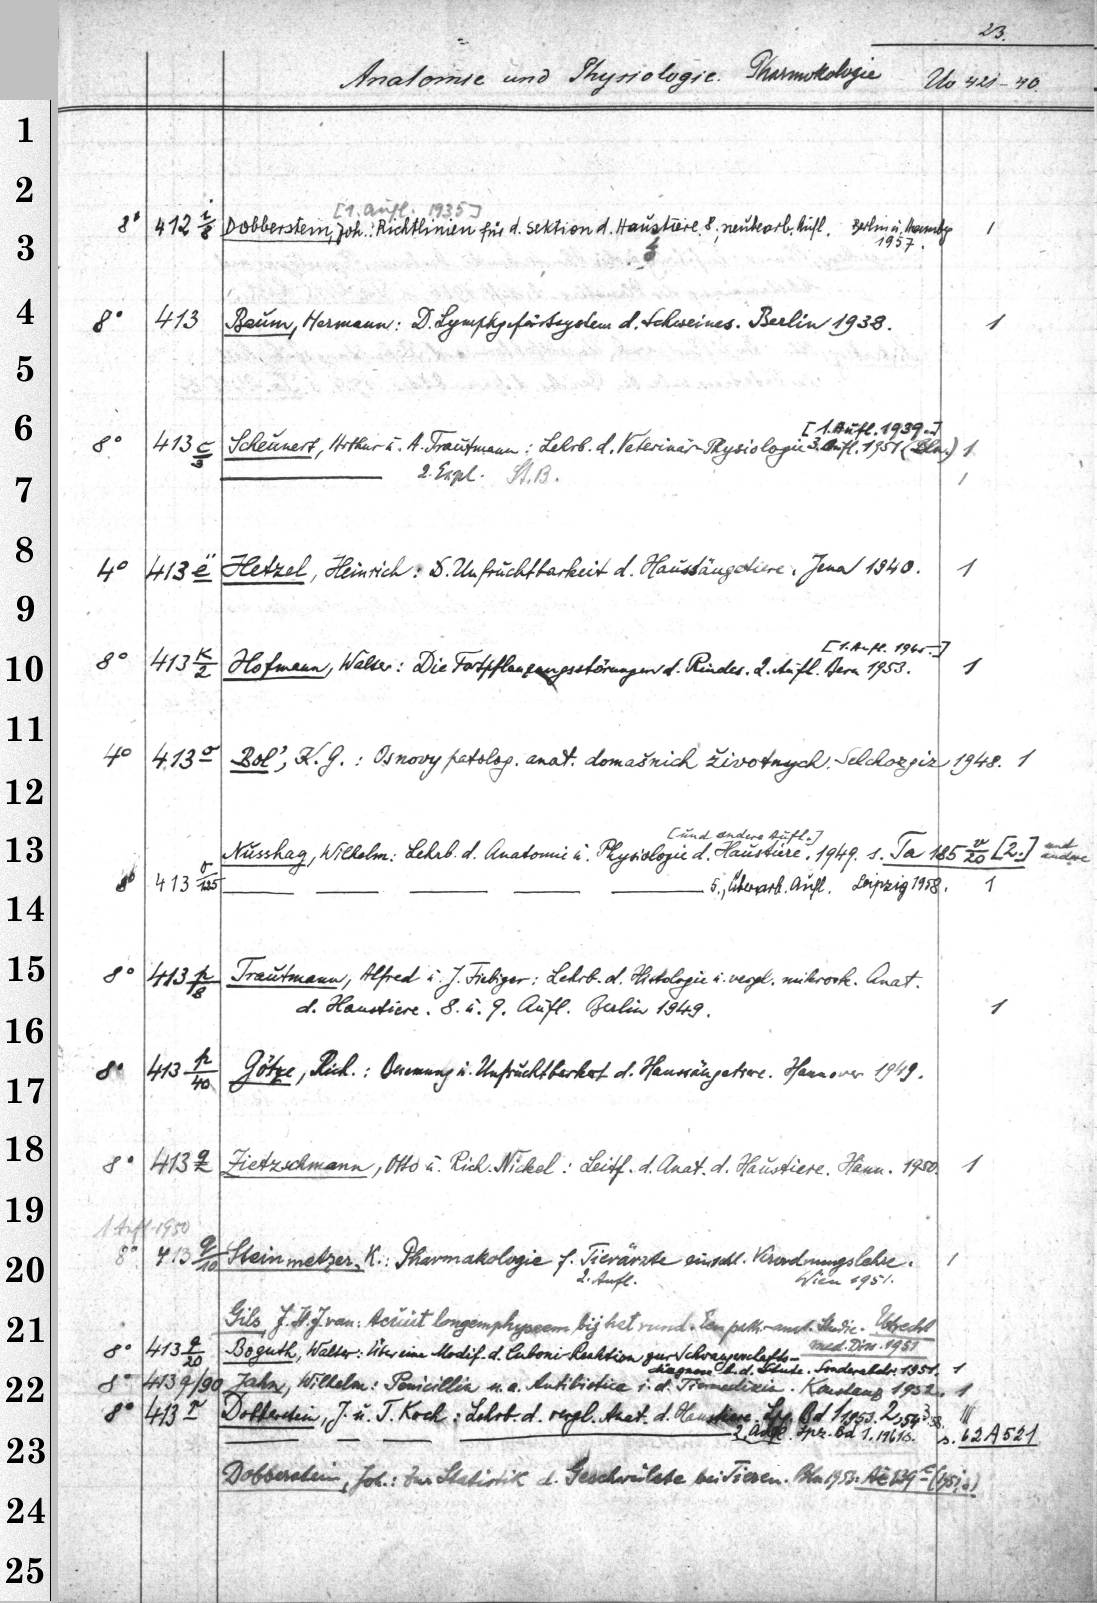 23.
Anatomie und Physiologie. Pharmakologie Uo 421-40.
1
2
[1. Aufl. 1935]
8° 412 i/8 Dobberstein, Joh.: Richtlinien für d. Sektion d. Haustiere. 8., neubearb. Aufl. Berlin u. Hambg 1
3 1957.
4 8° 413 Baum, Hermann: D. Lymphgefässsystem d. Schweines. Berlin 1938. 1
5
6 [1. Aufl. 1939..]
8° 413 c/3 Scheunert, Arthur u. A. Trautmann: Lehrb. d. Veterinär-Physiologie 3. Aufl. 1951 (Bln.) 1
7 2. Expl. St.B. 1
8 4° 413 ë Hetzel, Heinrich: D. Unfruchtbarkeit d. Haussäugetiere. Jena 1940. 1
9
[1. Aufl. 1945..]
10 8° 413 k/2 Hofmann, Walter: Die Fortpflanzungsstörungen d. Rindes. 2. Aufl. Bern 1953. 1
11
4° 413 o Bol', K. G.: Osnovy patolog. anat. domašnich životnych. Selchozgiz 1948. 1
12
[und andere Aufl.]
13 Nusshag, Wilhelm: Lehrb. d. Anatomie u. Physiologie d. Haustiere. 1949. s. Ta 185 v/20 [2.:] und andere
8° 413 o/135 5., überarb. Aufl. Leipzig 1958. 1
14
15 8° 413 p/8 Trautmann, Alfred u. J. Fiebiger: Lehrb. d. Histologie u. vergl. mikrosk. Anat.
d. Haustiere. 8. u. 9. Aufl. Berlin 1949. 1
16
8° 413 p/40 Götze, Rich.: Besamung u. Unfruchtbarkeit d. Haussäugetiere. Hannover 1949.
17
18 8° 413 q Zietzschmann, Otto u. Rich. Nickel: Leitf. d. Anat. d. Haustiere. Hann. 1950. 1
19
1 Aufl. 1950
8° 413 q/10 Steinmetzer, K.: Pharmakologie f. Tierärzte einschl. Verordnungslehre. 1
20 2. Aufl. Wien 1951.
21 Gils, J. H. J. van: Acuut longemphyseem bij het rund. Een path.-anat. Studie. Utrecht
med. Diss. 1951
8° 413 q/20 Boguth, Walter: Über eine Modif. d. Cuboni-Reaktion zur Schwangerschafts-
diagnose b. d. Stute. Sonderabdr. 1951. 1
22 8° 413 q/90 Jahn, Wilhelm: Penicillin u. a. Antibiotica i. d. Tiermedizin. Konstanz 1952. 1
8° 413 r Dobberstein, J. u. T. Koch: Lehrb. d. vergl. Anat. d. Haustiere. Lpz. Bd 1 1953. 2, 1954 3 58.
23 2. Aufl. Lpz. Bd 1. 1961. s. 62 A 521
Dobberstein, Joh.: Zur Statistik d. Geschwülste bei Tieren. Bln 1953.
24
25